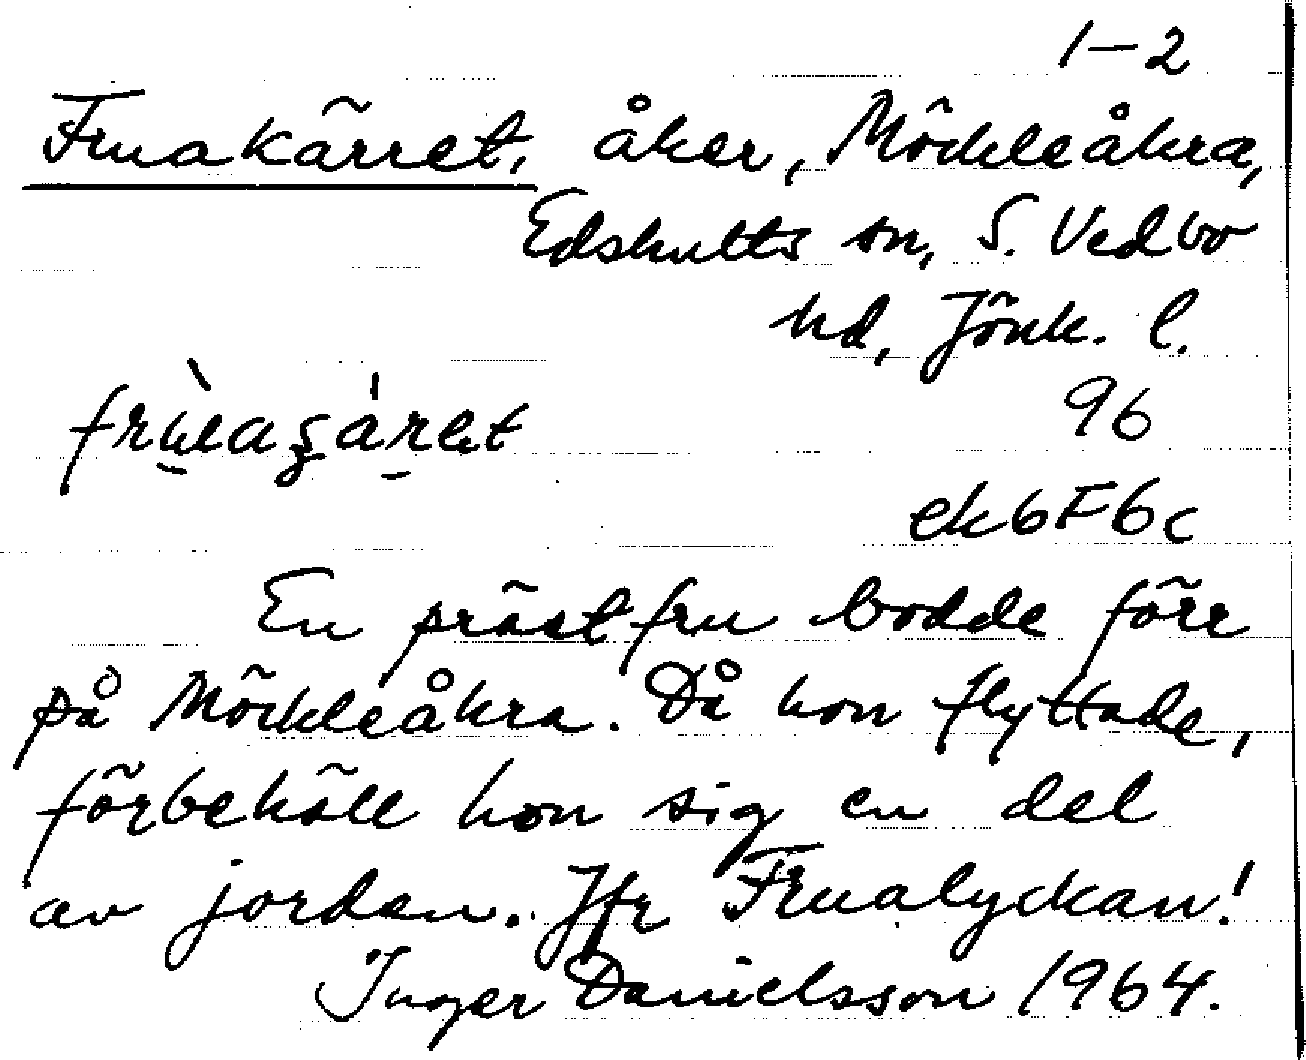 1-2
Fruakärret, åker, Möckleåkra,
Edshults sn, S. Vedbo
hd, Jönk. l.
96
ek6F6c
En prästfru bodde förr
på Möckleåkra. Då hon flyttade,
förbehöll hon sig en del
av jorden. Jfr Frualyckan!
Inger Danielsson 1964.